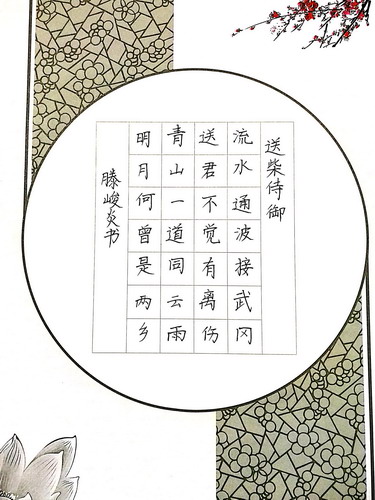 送柴侍御
流水通波接武冈
送君不觉有离伤
青山一道同云雨
明月何曾是两乡
滕峻炎书